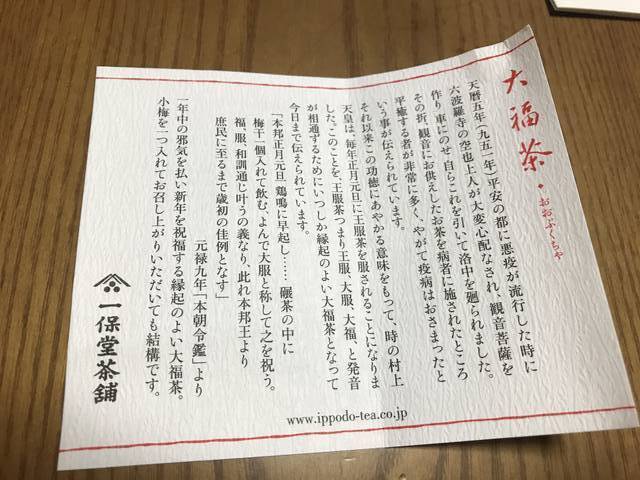 大福茶・おおぶくちゃ
天暦五年(九五一年)平安の都に悪疫が流行した時に
六波羅寺の空也上人が大変心配なされ、観音菩薩を
作り車にのせ、自らこれを引いて洛中を廻られました。
その折、観音にお供えしたお茶を病者に施されたところ
平癒する者が非常に多く、やがて疫病はおさまったと
いう事が伝えられています。
それ以来この功徳にあやかる意味をもって、時の村上
天皇は、毎年正月元旦に王服茶を服されることになりま
した。このことを、王服茶つまり王服、大服、大福、と発音
が相通ずるためにいつしか縁起のよい大福茶となって
今日まで伝えられています。
「本邦正月元旦、鶏鳴に早起し……碾茶の中に
梅干一個入れて飲む。よんで大服と称して之を祝う。
福、服、和訓通じ叶うの義なり、此れ本邦王より
庶民に至るまで歳初の佳例となす」
元禄九年「本朝令鑑」より
一年中の邪気を払い新年を祝福する縁起のよい大福茶。
小梅を一つ入れてお召し上がりいただいても結構です。
一保堂茶舗
www.ippodo-tea.co.jp